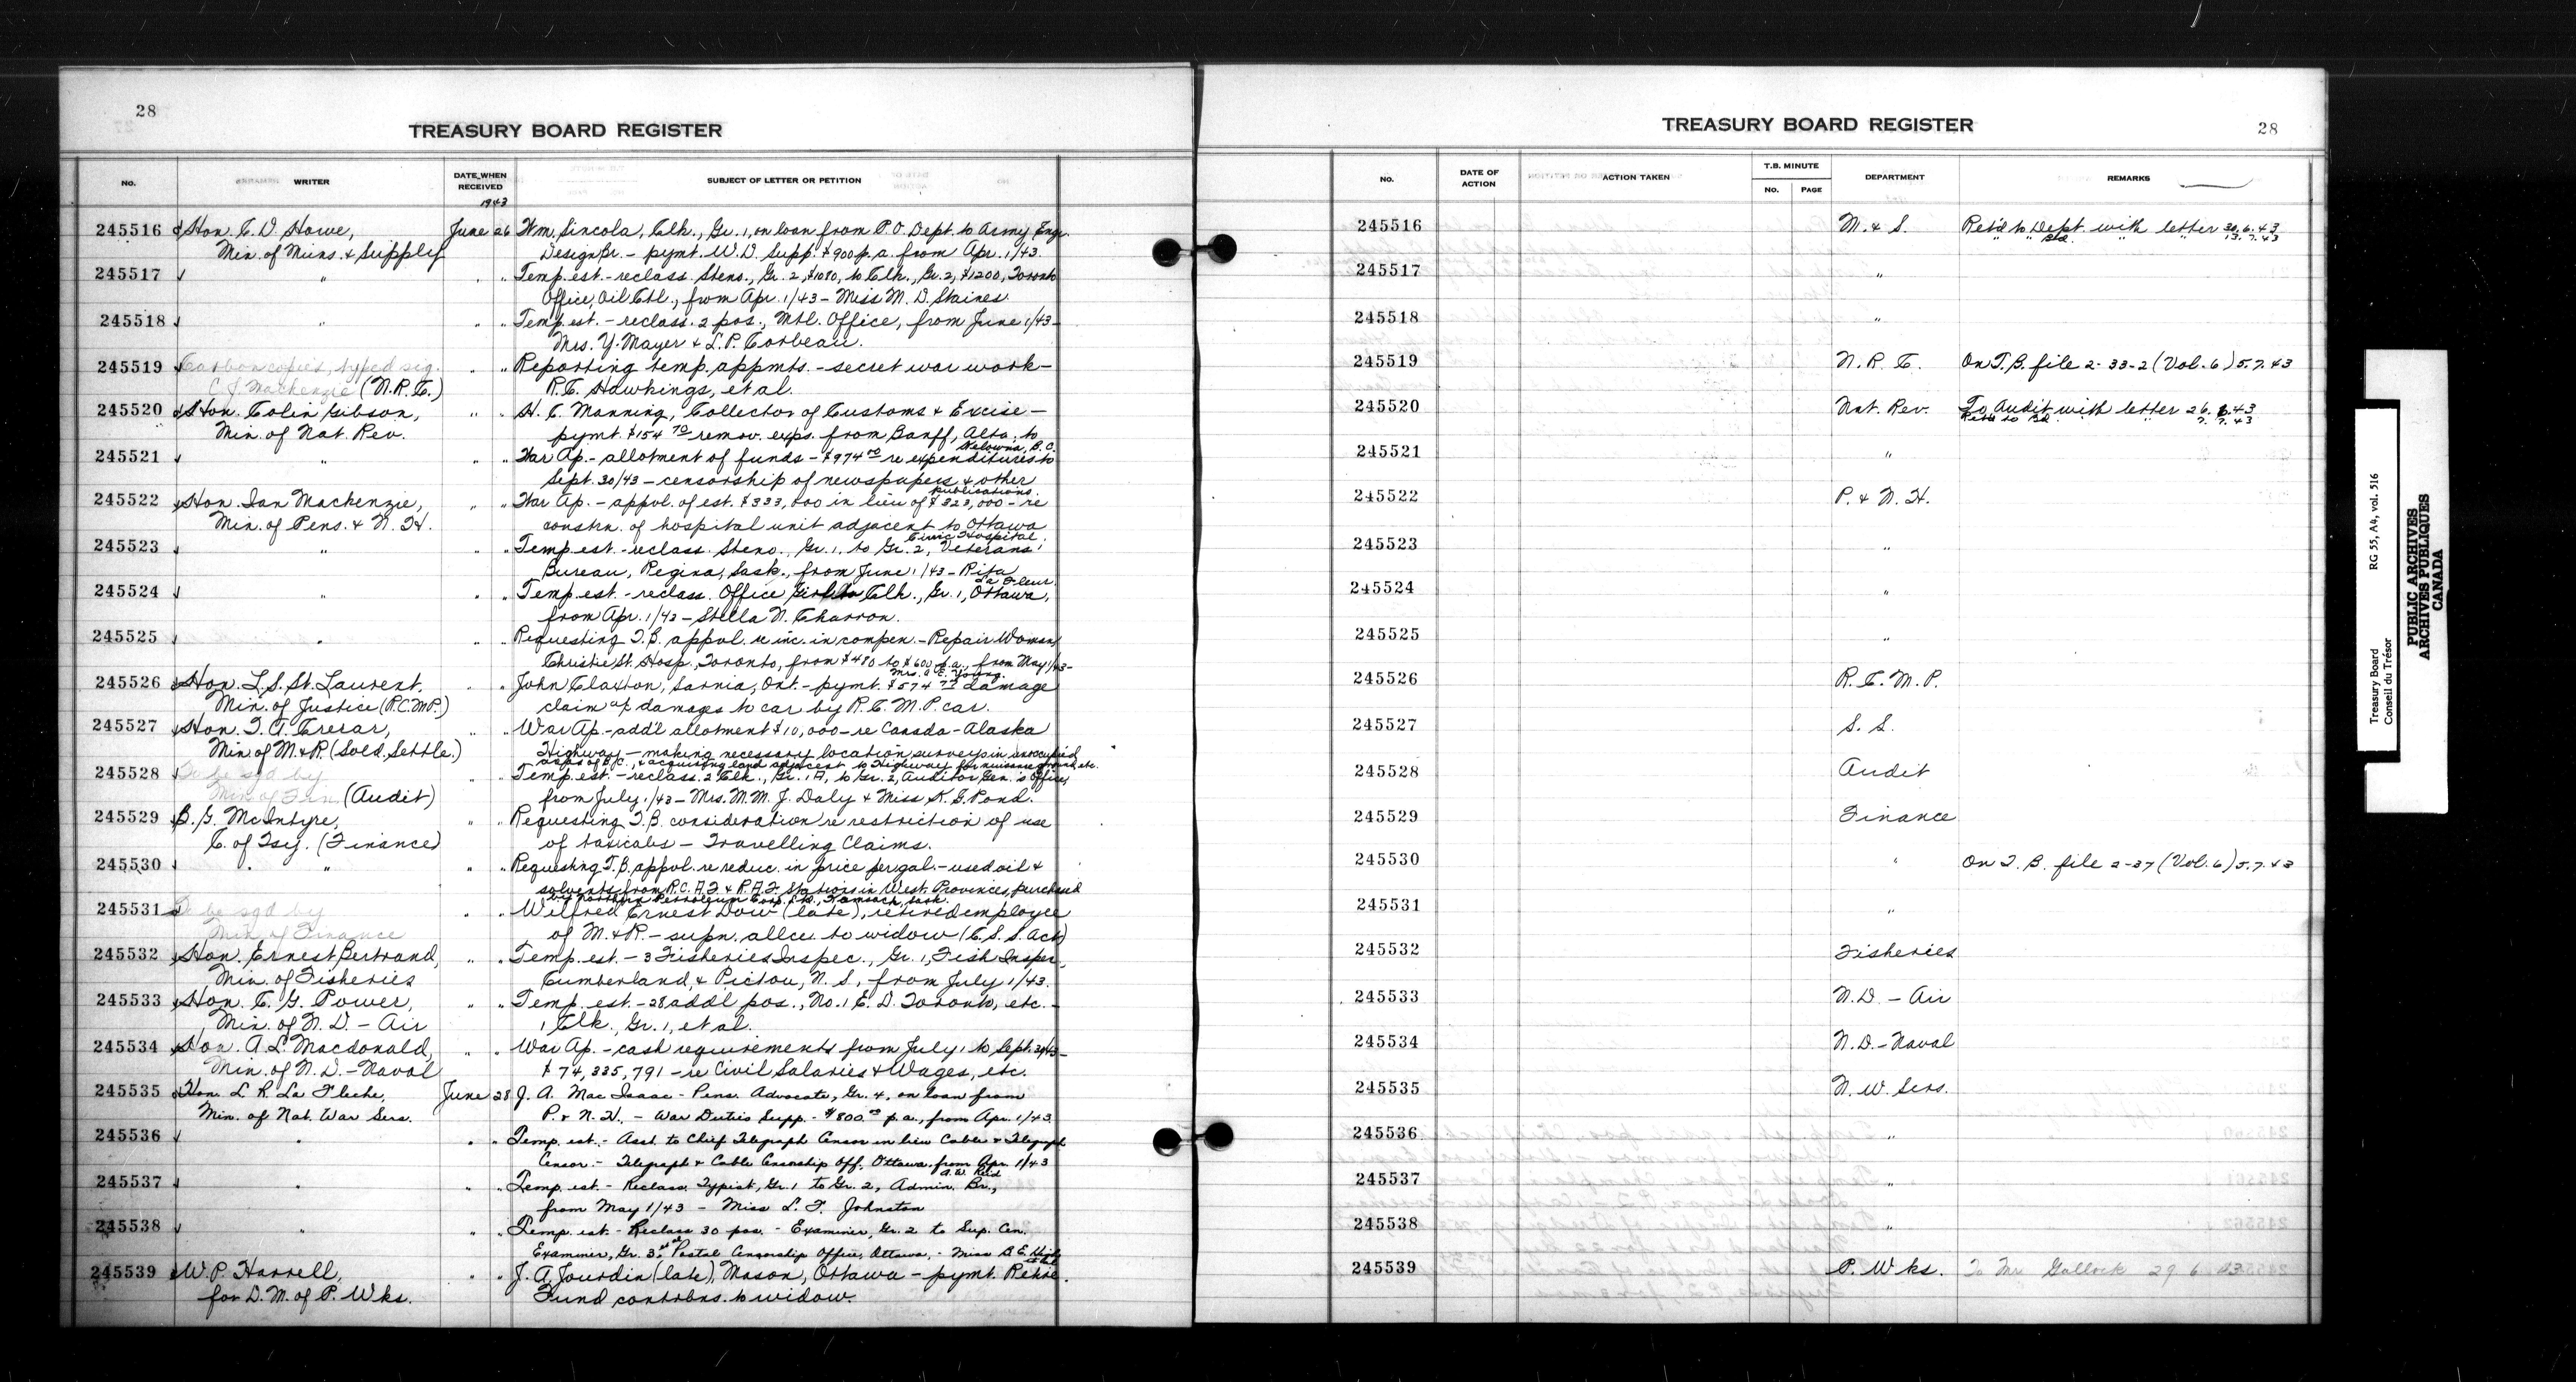 28
TREASURY BOARD REGISTER
NO. WRITER DATE WHEN RECEIVED SUBJECT OF LETTER OR PETITION
1943
245516 Hon. C. D. Howe, June 26 Wm. Sincola, Clk., Gr. 1, on loan from P.O. Dept. to Army Engr.
Min. of Muns. & Supply Design Br. - pymt. W.D. Supp. $900 p.a. from Apr. 1/43.
245517 " " " Temp. est. - reclass. Steno., Gr. 2, $1080, to Clk., Gr. 2, $1200, Toronto
Office, Oil Ctl., from Apr. 1/43 - Miss M. D. Staines.
245518 " " " Temp. est. - reclass. 2 pos., Mtl. Office, from June 1/43 -
Mrs. Y. Mayer & L. P. Corbeau.
245519 Carbon copies, typed sig. " " Reporting temp. appmts. - secret war work -
C. J. Mackenzie (N.R.C.) R. C. Hawkings, et al.
245520 Hon. Colin Gibson, " " H. C. Manning, Collector of Customs & Excise -
Min. of Nat. Rev. pymt. $154 70 remov. exps. from Banff, Alta. to
Kelowna, B.C.
245521 " " " War Ap. - allotment of funds - $974 00 re expenditures to
Sept. 30/43 - censorship of newspapers & other
publications.
245522 Hon. Ian Mackenzie, " " War Ap. - appvl. of est. $333,000 in lieu of $323,000 - re
Min. of Pens. & N. H. constrn. of hospital unit adjacent to Ottawa
Civic Hospital.
245523 " " " Temp. est. - reclass. Steno., Gr. 1, to Gr. 2, Veterans'
Bureau, Regina, Sask., from June 1/43 - Rita
La Fleur.
245524 " " " Temp. est. - reclass. Office Girl to Clk., Gr. 1, Ottawa,
from Apr. 1/43 - Stella N. Charron.
245525 " " " Requesting T.B. appvl. re inc. in compen. - Repair Woman,
Christie St. Hosp., Toronto, from $480 to $600 p.a., from May 1/43 -
Mrs. A. E. Young.
245526 Hon. L. S. St. Laurent, " " John Claxton, Sarnia, Ont. - pymt. $574 damage
Min. of Justice (R.C.M.P.) claim damages to car by R.C.M.P. car.
245527 Hon. T. A. Crerar, " " War Ap. - add'l allotment $10,000 - re Canada - Alaska
Min. of M. & R. (Sold. Settle.) Highway - making necessary location surveys in unoccupied
areas of B.C., & acquiring land adjacent to Highway for nuisance ground, etc.
245528 To be sgd by " " Temp. est. - reclass. 2 Clk., Gr. 1A, to Gr. 2, Auditor Gen.'s Office,
Min. of Fin. (Audit) from July 1/43 - Mrs. M. M. J. Daly & Miss K. G. Pond.
245529 B. G. McIntyre, " " Requesting T.B. consideration re restriction of use
C. of Tsy. (Finance) of taxicabs - Travelling Claims.
245530 " " " Requesting T.B. appvl. re reduc. in price per gal. - used oil &
solvents from R.C.A.F. & R.A.F. Stations in West. Provinces, purchased
by Northern Petroleum Corp. Ltd., Kamsack, Sask.
245531 To be sgd by " " Wilfred Ernest Dow (late), retired employee
Min. of Finance of M. & R. - supn. allce. to widow (C.S.S. Act)
245532 Hon. Ernest Bertrand, " " Temp. est. - 3 Fisheries Inspec., Gr. 1, Fish Inspn.,
Min. of Fisheries Cumberland, & Pictou, N.S., from July 1/43.
245533 Hon. C. G. Power, " " Temp. est. - 28 addl pos., No. 1 E.D. Toronto, etc. -
Min. of N.D. - Air 1 Clk., Gr. 1, et al.
245534 Hon. A. L. Macdonald, " " War Ap. - cash requirements from July 1 to Sept. 30/43 -
Min. of N.D. - Naval $74,335,791 - re Civil Salaries & Wages, etc.
245535 Hon. L. R. La Fleche, June 28 J. A. Mac Isaac - Pens. Advocate, Gr. 4, on loan from
Min. of Nat. War Sers. P. & N. H. - War Duties Supp. - $800 00 p.a., from Apr. 1/43
245536 " " " Temp. est. - Asst. to Chief Telegraph Censor in lieu Cable & Telegraph
Censor. - Telegraph & Cable Censorship Off. Ottawa, from Apr. 1/43
A. W. Reid
245537 " " " Temp. est. - Reclass. Typist, Gr. 1 to Gr. 2, Admin. Br.,
from May 1/43 - Miss L. F. Johnston
245538 " " " Temp. est. - Reclass 30 pos. - Examiner, Gr. 2 to Sup. Cen.
Examiner, Gr. 3, Postal Censorship Office, Ottawa, - Miss B. E.
245539 W. P. Harrell, " " J. A. Jourdin (late), Mason, Ottawa - pymt. Retire.
for D. M. of P. Wks. Fund contrbns. to widow.
TREASURY BOARD REGISTER
28
NO. DATE OF ACTION ACTION TAKEN T.B. MINUTE NO. PAGE DEPARTMENT REMARKS
245516 M. & S. Ret'd to Dept. with letter 30.6.43
" " Bd. " " 13.7.43
245517 "
245518 "
245519 N.R.C. On T.B. file 2-33-2 (Vol. 6) 5.7.43
245520 Nat. Rev. To Audit with letter 26.6.43
Ret'd to Bd. " " 7.7.43
245521 "
245522 P. & N. H.
245523 "
245524 "
245525 "
245526 R.C.M.P.
245527 S. S.
245528 Audit
245529 Finance
245530 " On T.B. file 2-37 (Vol. 6) 5.7.43
245531 "
245532 Fisheries
245533 N.D. - Air
245534 N.D. - Naval
245535 N. W. Sers.
245536 "
245537 "
245538 "
245539 P. Wks. To Mr Gullock 29 6 43
Treasury Board RG 55, A4, vol. 516
Conseil du Trésor
PUBLIC ARCHIVES
ARCHIVES PUBLIQUES
CANADA